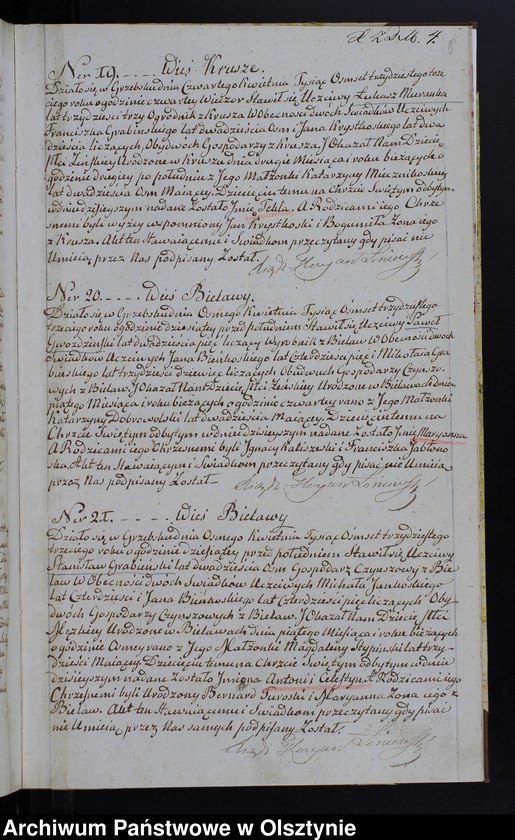 8
Nor 19. - - - - Wieś Krusze.
Działo się w Grzebsku dnia Czwartego Kwietnia Tysiąc Osmset trzydziestego trze
ciego roku o godzinie czwartey Wieczor Stawił się Uczciwy Łukasz Murawka
lat trzydziesci trzy Ogrodnik z Krusza W Obecności dwoch Swiadków Uczciwych
Franciszka Grabinskiego lat dwadzieścia Osm i Jana Krystkoskiego lat dwa
dzieścia liczących, Obydwoch Gospodarzy z Krusza, J Okazał Nam Dziecie
Płci Żeńskiej Urodzone w Kruszu dnia drugie Miesiąca i roku bieżących o
godzinie drugiey po południu z Jego Małżonki Katarzyny
lat dwadzieścia Osm Maiącey, Dziecięciu temu na Chrzcie Swiętym odbytym
w dniu dzisieyszym nadane Zostało Jmie Tekla. A Rodzicami iego Chrze
snemi byli wyżey wspomniony Jan Krystkoski i Bogumiła Zona iego
z Krusza. Akt ten Stawaiącemu i Swiadkom przeczytany gdy pisać nie
Umieią, przez Nas podpisany Został.
Nor 20. - - - - Wieś Bielawy.
Działo się w Grzebsku dnia Osmego Kwietnia Tysiąc Osmset trzydziestego
trzeciego roku o godzinie dziesiątey przed południem Stawił się Uczciwy Paweł
Gwozdzinski lat dwadzieścia pięć liczący Wyrobnik z Bielaw W Obecności dwoch
Swiadków Uczciwych Jana Bieńkoskiego lat Czterdzieści pięć i Mikołaia Gra
bińskiego lat trzydzieści dziewięc liczących Obudwuch Gospodarzy Czynszo
wych z Bielaw, J Okazał Nam Dziecie, Płci Żeńskiey Urodzone w Bielawach dnia
piątego Miesiąca i roku bieżących o godzinie czwartey rano z Jego Małżonki
Katarzyny Dobrowolski lat dwadzieścia Maiącey, Dziecięciu temu na
Chrzcie Swiętym odbytym w dniu dzisieyszym nadane Zostało Jmie Maryanna
A Rodzicami iego Chrzesnemi byli Ignacy Kaliszeski i Franciszka Jabłono
ska. Akt ten Stawaiącym i Swiadkom przeczytany gdy pisać nie Umieią
przez Nas podpisany Został.
Nor 21. - - - - Wieś Bielawy
Działo się w Grzebsku dnia Osmego Kwietnia Tysiąc Osmset trzydziestego
trzeciego roku o godzinie dziesiątey przed południem Stawił się Uczciwy
Stanisław Grabiński lat dwadzieścia Osm Gospodarz Czynszowy z Bie
law W Obecności dwoch Swiadków Uczciwych Michała Jankoskiego
lat Czterdziesci i Jana Bieńkoskiego lat Czterdzieści pięć liczących Oby
dwóch Gospodarzy Czynszowych z Bielaw. J Okazał Nam Dziecie Płci
Męzkiey Urodzone w Bielawach dnia piątego Miesiąca i roku bieżących
o godzinie Osmey rano z Jego Małżonki Magdaleny Stypiński lat trzy-
dzieści Maiącey, Dziecięciu temu na Chrzcie Swiętym odbytym w dniu
dzisieyszym nadane Zostało Jmiona Antoni i Celestyn. A Rodzicami iego
Chrzesnemi byli Urodzony Bernard Turoski i Maryanna Zona iego z
Bielaw. Akt ten Stawaiącemu i Swiadkom przeczytany gdy pisać
nie Umieią, przez Nas samych podpisany Został.
Archiwum Państwowe w Olsztynie